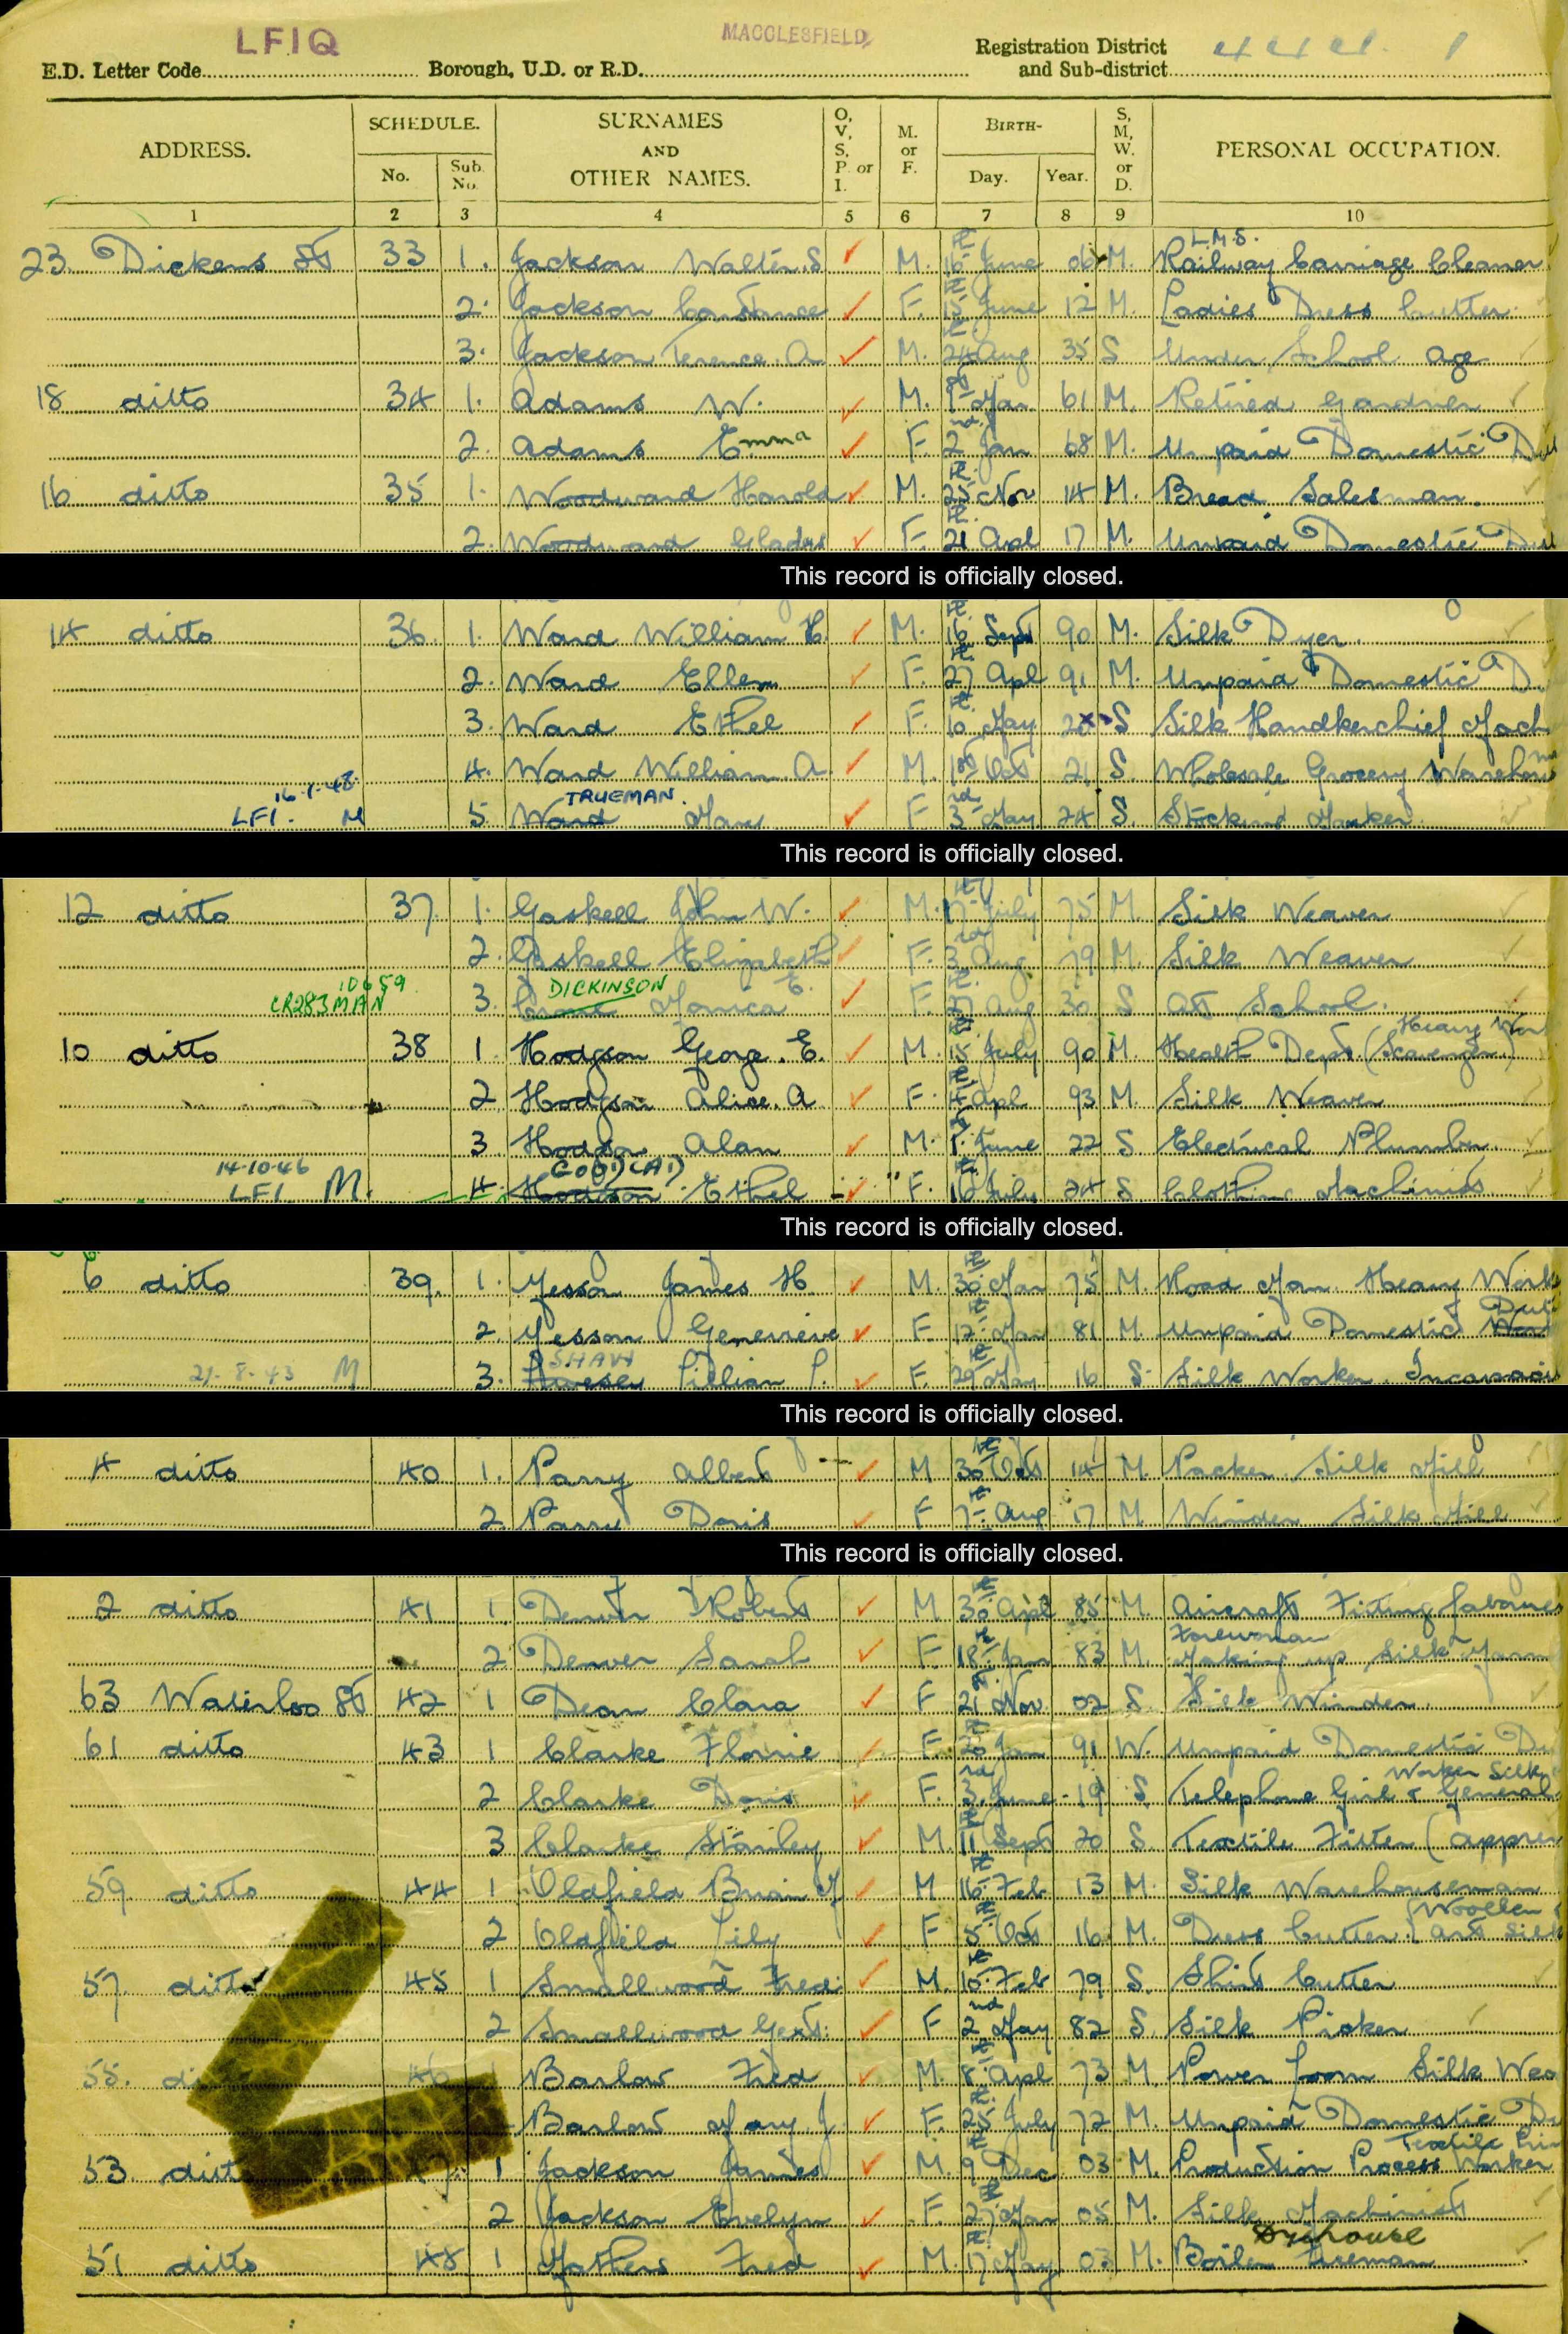 LFIQ MACCLESFIELD
E.D. Letter Code Borough, U.D. or R.D. Registration District and Sub-district
ADDRESS. SCHEDULE. No. Sub. No. SURNAMES AND OTHER NAMES. O, V, S, P. or I. M. or F. BIRTH- Day. Year. S, M, W. or D. PERSONAL OCCUPATION.
1 2 3 4 5 6 7 8 9 10
L.M.S.
23 Dickens St 33 1. Jackson Walter S M. 16th June 06 M. Railway Carriage Cleaner
2. Jackson Constance F. 15th June 12 M. Ladies Dress Cutter
3. Jackson Terence. A M. 24th Aug 35 S Under School Age
18 ditto 34 1. Adams W. M. 1st Mar 61 M. Retired Gardner
2. Adams Emma F. 2nd Jan 68 M. Unpaid Domestic Du
16 ditto 35 1. Woodward Harold M. 25th Nov 14 M. Bread Salesman.
2. Woodward Gladys F. 21 Apl 17 M. Unpaid Domestic Du
This record is officially closed.
14 ditto 36. 1. Ward William H. M. 16th Sept 90 M. Silk Dyer.
2. Ward Ellen F. 27th Apl 91 M. Unpaid Domestic D.
3. Ward Ethel F. 10th May S Silk Handkerchief Mach
4. Ward William A. M. 1st Oct 21 S. Wholesale Grocery Warehou
16-1-48 TRUEMAN
LFI. M 5. Ward Mary F 3rd May 24 S. Stocking Maker
This record is officially closed.
12 ditto 37. 1. Gaskell John W. M. 17th July 75 M. Silk Weaver
2. Gaskell Elizabeth F. 3rd Aug 79 M. Silk Weaver
10659 DICKINSON
CR283 MAN 3. Monica E. F. 27th Aug 30 S At School.
Heavy Wor
10 ditto 38 1 Hodgson George. E. M. 15th July 90 M. Health Dept (Scavenger)
2 Hodgson Alice. A F. 4th Apl 93 M. Silk Weaver
3 Hodgson Alan M. 1st June 22 S Electrical Plumber
14-10-46 GOODLAD
LFI M. 4. Hodgson Ethel F. 16th July 24 S Clothing Machinist
This record is officially closed.
6 ditto 39. 1. Yesson James H. M. 30th Mar 75 M. Road Man. Heavy Work
Duti
2. Yesson Genevieve F 12th Mar 81 M Unpaid Domestic
SHAW
21-8-43 M 3. Lillian F. 29th May 16 S. Silk Worker. Incapaci
This record is officially closed.
4 ditto 40 1. Parry Albert M 30th Oct 14 M. Packer. Silk Mill
2. Parry Doris F 7th Aug 17 M Winder Silk Mill
This record is officially closed.
2 ditto 41 1 Denver Robert M 30th Apl 85 M. Aircraft Fitting Laboure
Forewoman
2 Denver Sarah F 18th Jan 83 M. Making up Silk Yarn
63 Waterloo St 42 1 Dean Clara F 21st Nov 02 S. Silk Winder.
61 ditto 43 1 Clarke Florrie F. 20th Jan 91 W Unpaid Domestic Du
Worker Silk
2 Clarke Doris F. 3rd June 19 S. Telephone Girl & General
3 Clarke Stanley M. 11th Sept 20 S. Textile Fitter (Appren
59 ditto 44 1 Oldfield Brian M M 16th Feb 13 M. Silk Warehouseman
(Woollen &
2 Oldfield Lily F 5th Oct 16 M. Dress Cutter. Art Silk
57 ditto 45 1 Smallwood Fred: M. 10th Feb 79 S. Shirt Cutter
2 Smallwood Gert: F 2nd May 82 S. Silk Picker
55. di 46 Barlow Fred M. 8th Apl 73 M. Power Loom Silk Wea
Barlow Mary J F. 25th July 72 M. Unpaid Domestic Du
Textile Prin
53 ditt 1 Jackson James M. 9th Dec 03 M. Production Process Worker
2 Jackson Evelyn F. 27th Mar 05 M. Silk Machinist
Dyehouse
51 ditto 48 1 Mathers Fred M. 17th May 03 M. Boiler Fireman